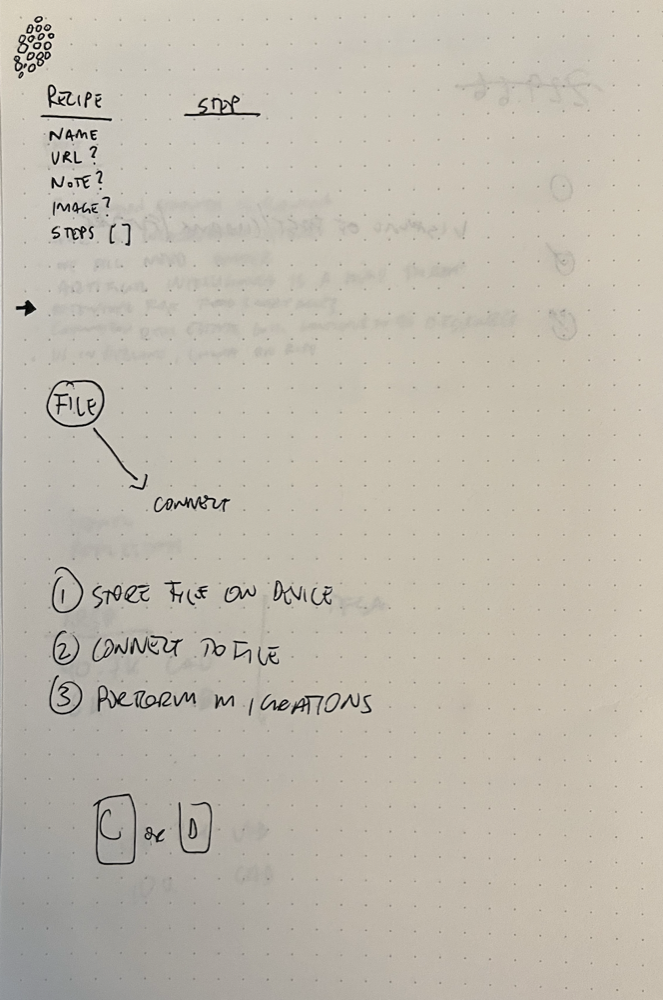 RECIPE
STEP
NAME
URL?
NOTE?
IMAGE?
STEPS []
FILE
CONNECT
1 STORE FILE ON DEVICE
2 CONNECT TO FILE
3 PERFORM MIGRATIONS
C or D